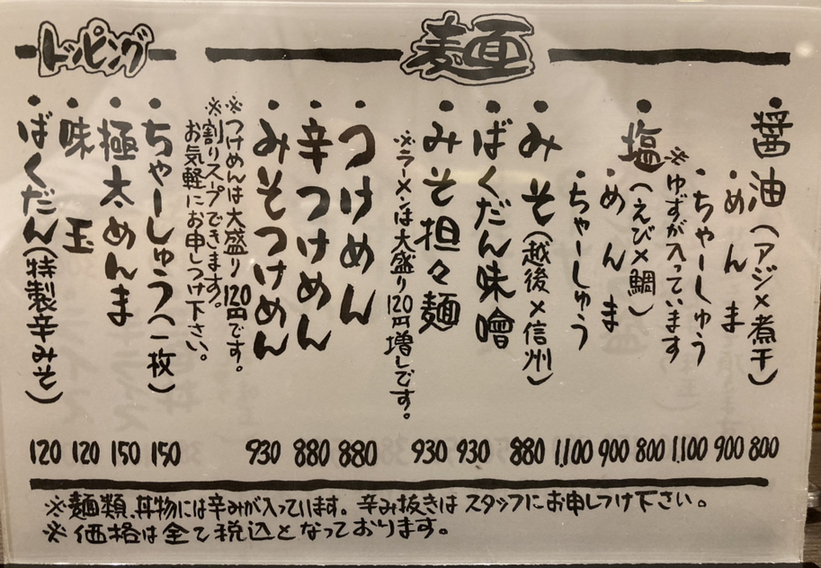 麺
醤油(アジ×煮干) 800
・めんま 900
・ちゃーしゅう 1,100
※ゆずが入っています
・塩(えび×鯛) 800
・めんま 900
・ちゃーしゅう 1,100
・みそ(越後×信州) 880
・ばくだん味噌 930
・みそ担々麺 930
※ラーメンは大盛り120円増しです。
・つけめん 880
・辛つけめん 880
・みそつけめん 930
※つけめんは大盛り120円です。
※割りスープできます。
お気軽にお申しつけ下さい。
トッピング
・ちゃーしゅう(一枚) 150
・極太めんま 150
・味玉 120
・ばくだん(特製辛みそ) 120
※麺類、丼物には辛みが入っています。辛み抜きはスタッフにお申しつけ下さい。
※価格は全て税込となっております。